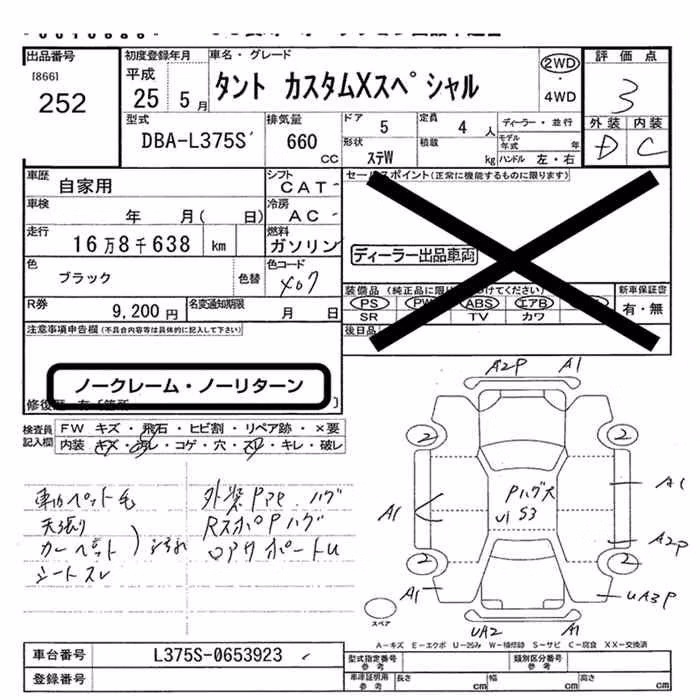 出品番号
[866]
252
初度登録年月
平成
25 5月
車名・グレード
タント カスタムXスペシャル
2WD
・
4WD
評価点
3
外装 内装
D C
型式
DBA-L375S
排気量
660 CC
ドア 5
定員 4 人
ディーラー・並行
形状 ステW
積載 kg
モデル年式 年
ハンドル 左・右
車歴 自家用
シフト CAT
車検 年 月( 日)
冷房 AC
走行 16万8千638 km
燃料 ガソリン
色 ブラック 色替
色コード X07
R券 9,200 円
名変通知期限 月 日
セールスポイント(正常に機能するものに限ります)
ディーラー出品車両
装備品
PS PW ABS エアB
SR TV カワ
新車保証書
有・無
後日品
注意事項申告欄(不具合内容等は具体的に記入して下さい)
ノークレーム・ノーリターン
検査員記入欄
FW キズ・飛石・ヒビ割・リペア跡・×要
内装 キズ・汚レ・コゲ・穴・スレ・キレ・破レ
車内ペット毛
天張り
カーペット
シートスレ
外装PアP.ハゲ
RスポPハゲ
A2P A1
2 2
A1
Pハゲ大
U1 S3
A1
A2P
2 2
A1
UA3P
UA2 A1
スペア
A-キズ E-エクボ U-凹み W-補修跡 S-サビ C-腐食 XX-交換済
車台番号 L375S-0653923
登録番号
型式指定番号 参考
類別区分番号 参考
車庫証明用 参考
長さ cm
幅 cm
高さ cm